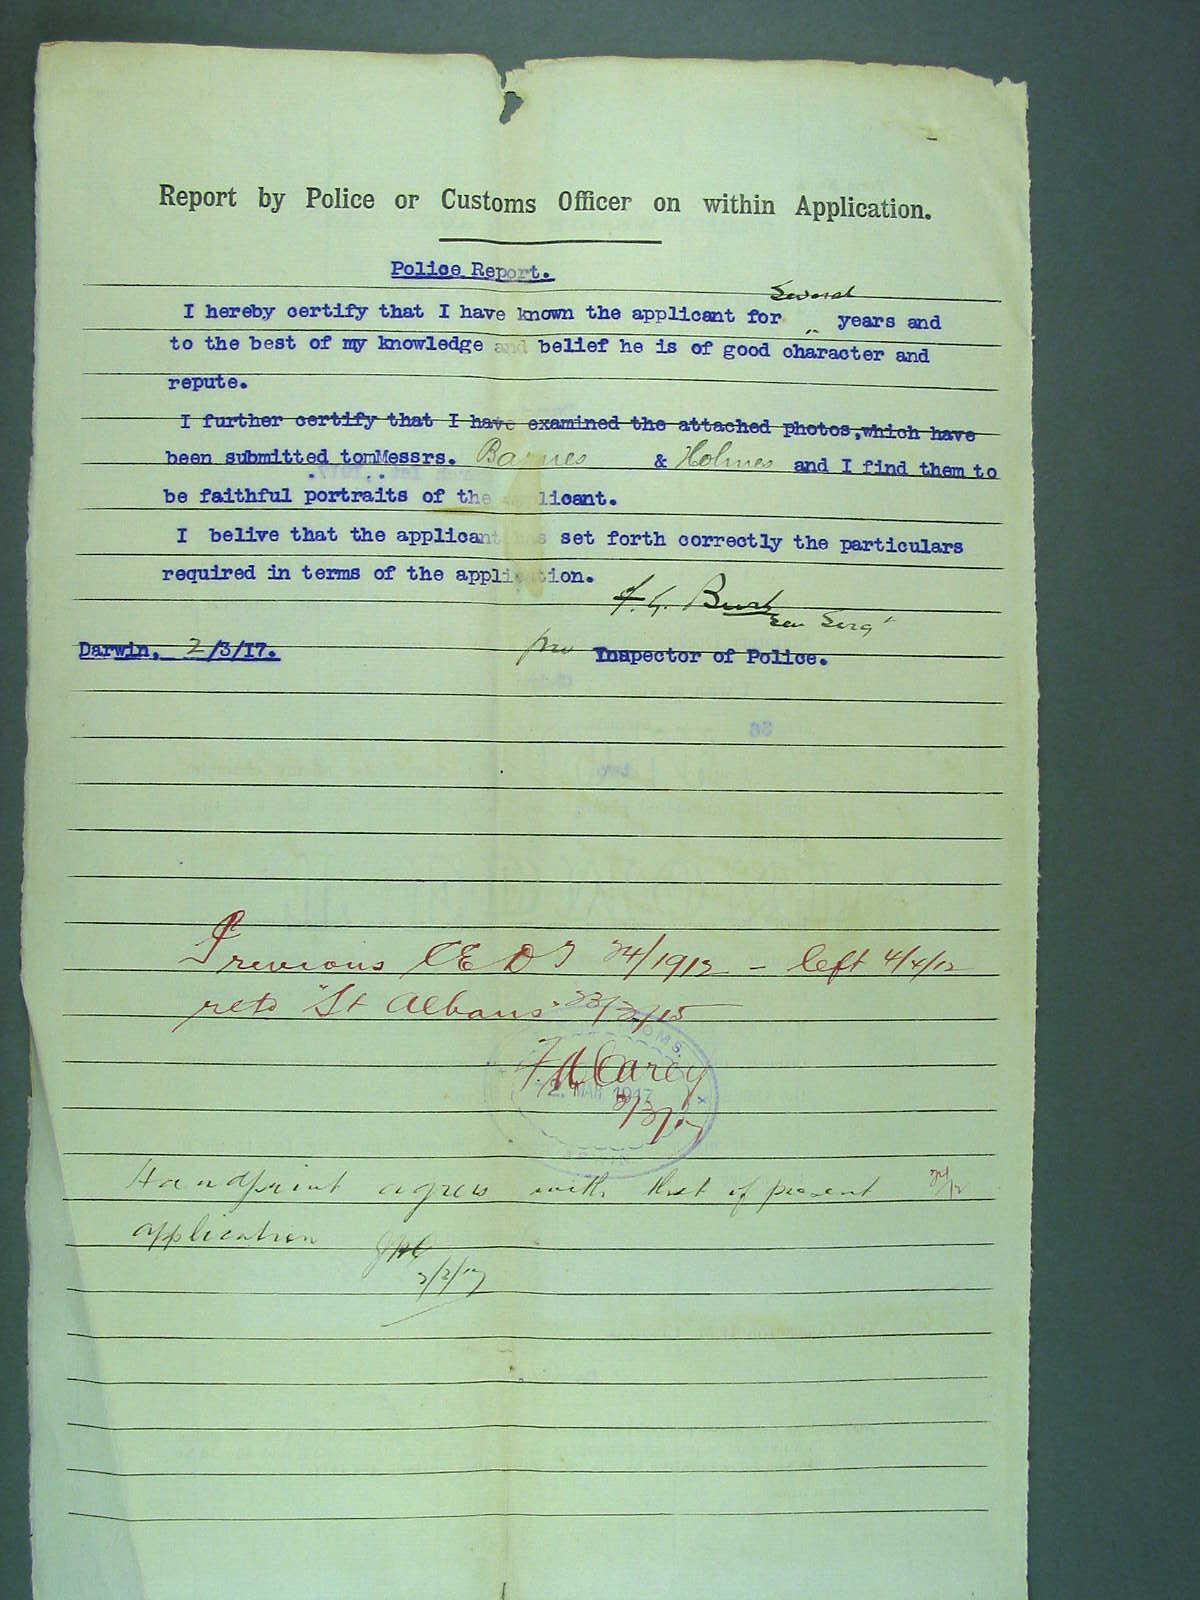 Report by Police or Customs Officer on within Application.
Police Report.
Several
I hereby certify that I have known the applicant for ,, years and
to the best of my knowledge and belief he is of good character and
repute.
I further certify that I have examined the attached photos,which have
been submitted tomMessrs. Barnes & Holmes and I find them to
be faithful portraits of the applicant.
I belive that the applicant has set forth correctly the particulars
required in terms of the application.
Sen Serg
Darwin, 2/3/17.
pro Inspector of Police.
Previous CEDT 24/1912 - left 4/4/12
retd "St Albans" 23/2/15
2 MAR 1917
Handprint agrees with that of present 24/12
application